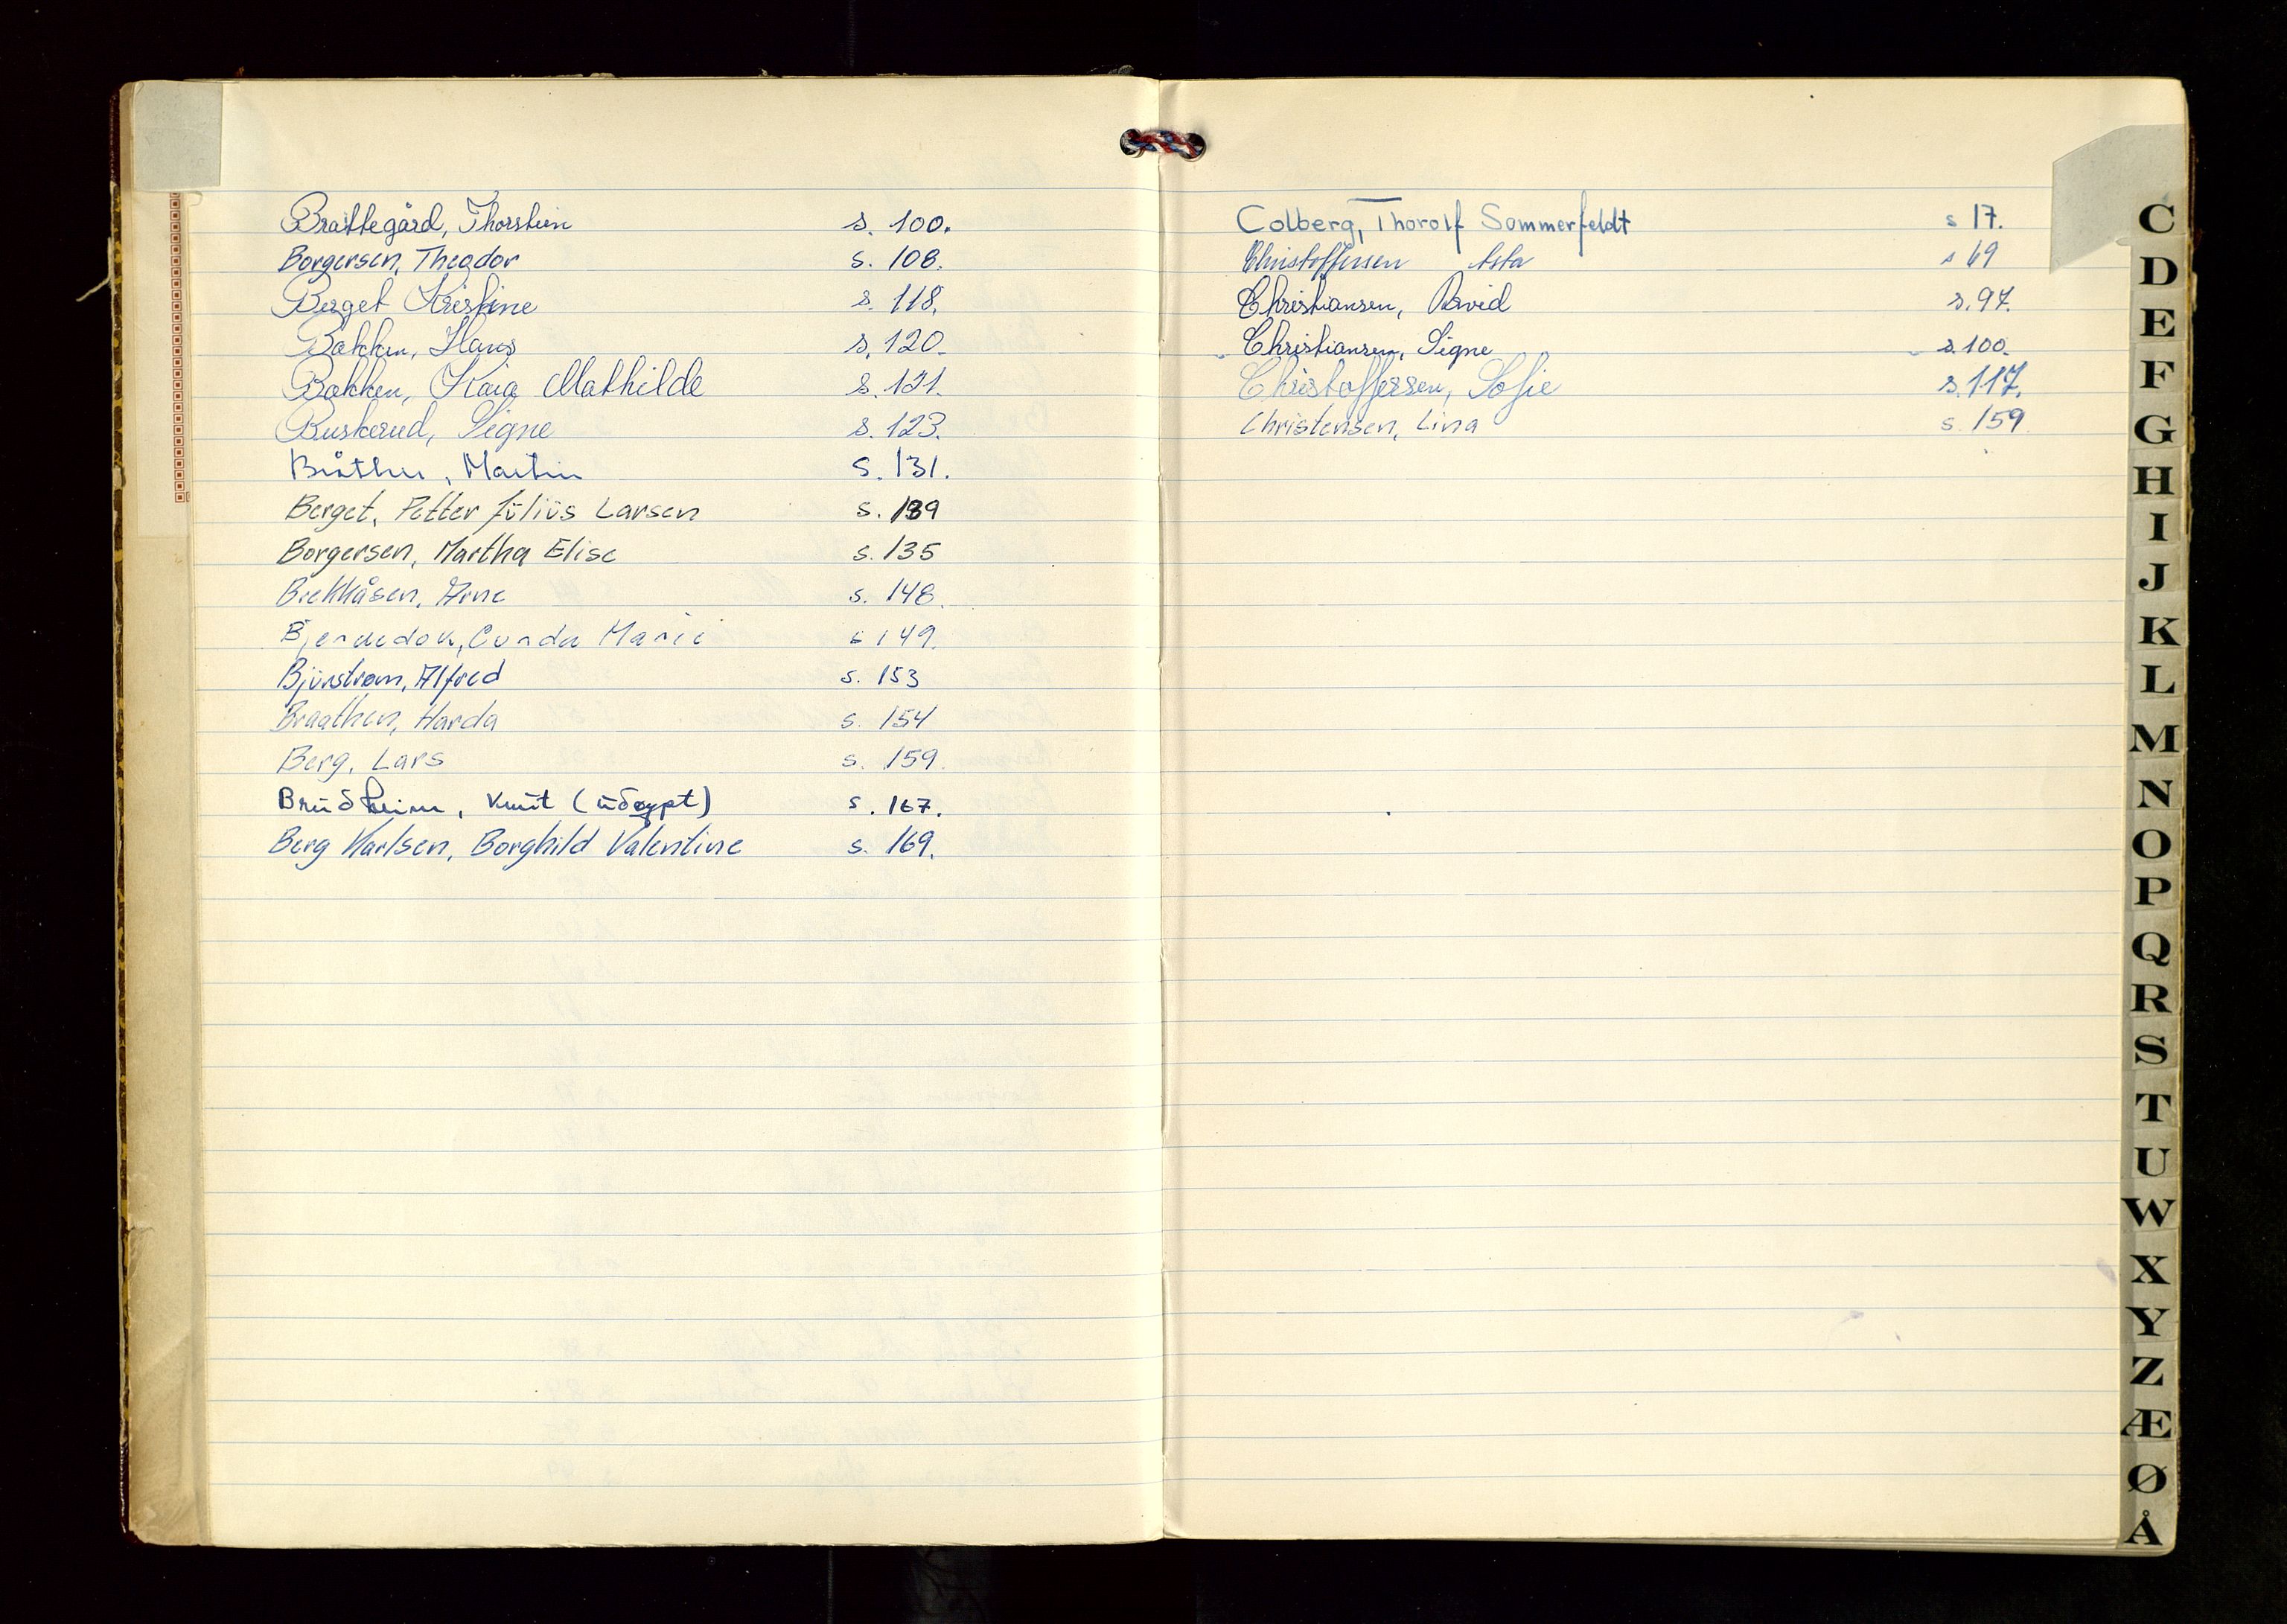 Brattegård, Thorstein s. 100.
Borgersen, Theodor s. 108.
Berget Kristine s. 118.
Bakken, Hans s. 120.
Bakken, Kaia Mathilde s. 121.
Buskerud, Signe s. 123.
Bråthen, Martin s. 131.
Berget, Petter Julius Larsen s. 139
Borgersen, Martha Elise s. 135
Brekkåsen, Arne s. 148.
Marie 149.
Bjurstrøm, Alfred s. 153
Braathen, Harda s. 154
Berg, Lars s. 159.
Knut s. 167.
Berg Karlsen, Borghild Valentine s. 169.
Colberg, Thorolf Sommerfeldt s 17.
Christoffersen Asta s 69
Christiansen, Arvid s. 97.
Christiansen, Signe s. 100.
Christoffersen, Sofie s. 117.
Christensen, Lina s. 159
C
D
E
F
G
H
I
J
K
L
M
N
O
P
Q
R
S
T
U
W
X
Y
Z
Æ
Ø
Å